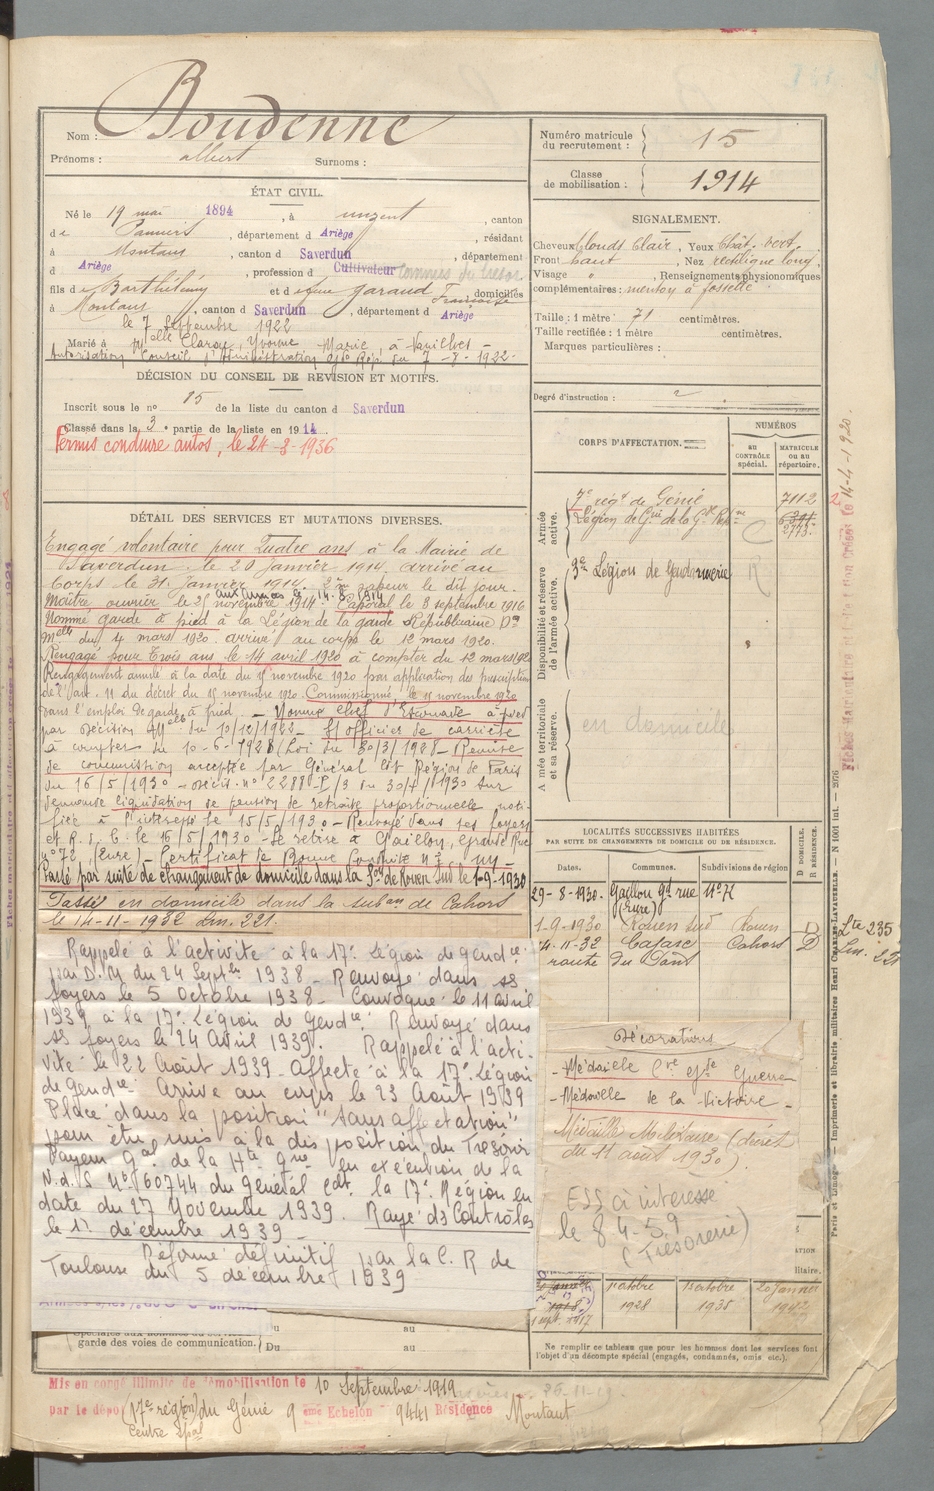 Nom : Boudenne
Prénoms : albert Surnoms :
Numéro matricule du recrutement : 15
Classe de mobilisation : 1914
ÉTAT CIVIL.
Né le 19 mai 1894, à unzent, canton
de Pamiers, département d Ariège, résidant
à Montaut, canton d Saverdun, département
d Ariège, profession d Cultivateur
fils de Barthélémy et de feue garaud Françoise, domiciliés
à Montaut, canton d Saverdun, département d Ariège
le 7 Septembre 1922
Marié à Melle Claroy, Yvonne Marie, à Varilhes -
Autorisation Conseil d'Administration Gde Rép. du 7-8-1922.
DÉCISION DU CONSEIL DE REVISION ET MOTIFS.
Inscrit sous le no 85 de la liste du canton d Saverdun
Classé dans la 3e partie de la liste en 1914
Permis conduire autos, le 24-3-1936
SIGNALEMENT.
Cheveux blonds clair, Yeux Chât. vert.
Front haut, Nez rectiligne long,
Visage ", Renseignements physionomiques
complémentaires : menton à fossette
Taille : 1 mètre 71 centimètres.
Taille rectifiée : 1 mètre centimètres.
Marques particulières :
Degré d'instruction : 2
DÉTAIL DES SERVICES ET MUTATIONS DIVERSES.
Engagé volontaire pour Quatre ans à la Mairie de
Saverdun le 20 janvier 1914, arrivé au
Corps le 31 Janvier 1914. 2me sapeur le dit jour.
aux armées le 14-8-1914
Maître ouvrier le 25 novembre 1914. Caporal le 8 septembre 1916
Nommé garde à pied à la Légion de la garde Républicaine Don
Melle du 4 mars 1920. arrivé au corps le 12 mars 1920.
Rengagé pour Trois ans le 14 avril 1920 à compter du 12 mars 1920
Rengagement annulé à la date du 15 novembre 1920 par application des prescriptions
de l'art. 11 du décret du 15 novembre 1920. Commissionné, le 15 novembre 1920
dans l'emploi de garde à pied. - Nommé chef d'Escouade à pied
par décision Melle du 10/12/1922 - S/officier de carrière
à compter du 10-6-1928 (Loi du 30/3/1928 - Remise
de commission acceptée par Général Cdt Région de Paris
du 16/5/1930 - décis. no 2288-P/3 du 30/4/1930 sur
demande liquidation de pension de retraite proportionnelle noti-
fiée à l'intéressé le 15/5/1930 - Renvoyé dans ses foyers
et R. d. C. le 16/5/1930 - Se retire à Gaillon, Grande Rue
no 72, (Eure) - Certificat de Bonne Conduite no
Passé par suite de changement de domicile dans la Son de Rouen Sud le 1-9-1930
Passé en domicile dans la subon de Cahors
le 14-11-1932 Lm. 221.
Rappelé à l'activité à la 17e Légion de gendie
par D. M du 24 Septbre 1938 - Renvoyé dans ses
foyers le 5 Octobre 1938 - Convoqué le 11 avril
1939 à la 17e Légion de Gendie. Renvoyé dans
ses foyers le 24 Avril 1939. Rappelé à l'acti-
vité le 22 Août 1939 - Affecté à la 17e Légion
de gendie Arrivé au corps le 23 Août 1939
Placé dans la position "sans affectation"
pour être mis à la disposition du Trésorier
Payeur Gal de la Hte Gne en exécution de la
N.d.S no 60744 du Général Cdt la 17e Région en
date du 27 Novembre 1939. Rayé ds Contrôles
le 1er décembre 1939 -
Réformé définitif par la C. R de
Toulouse du 5 décembre 1939
CORPS D'AFFECTATION.
NUMÉROS
AU CONTRÔLE spécial.
MATRICULE OU AU répertoire.
Armée active.
7e régt de Génie 7112
Légion de Gie de la Gde Répne 2773
Disponibilité et réserve de l'armée active.
3e Légion de Gendarmerie
Armée territoriale et sa réserve.
en domicile
LOCALITÉS SUCCESSIVES HABITÉES
PAR SUITE DE CHANGEMENTS DE DOMICILE OU DE RÉSIDENCE.
Dates. Communes. Subdivisions de région
D. DOMICILE.
R. RÉSIDENCE.
29-8-1930. Gaillon gd rue No 72
(Eure)
1-9-1930 Rouen Sud Rouen D Lte 235
4-11-32 Cajarc Cahors D
route du Pont
Décorations
- Médaille Cve gde Guerre -
- Médaille de la Victoire -
Médaille Militaire (décret
du 11 août 1930)
ESS à intéressé
le 8-4-59
(Trésorerie)
1er octobre 1928
15 octobre 1935
20 Janvier 1942
Ne remplir ce tableau que pour les hommes dont les services font
l'objet d'un décompte spécial (engagés, condamnés, omis etc.).
Spéciales aux hommes du service
garde des voies de communication.
Du au
Mis en congé illimité de démobilisation le 10 Septembre 1919
par le dépôt (17e région) du Génie 9 eme Echelon 9441 Résidence Montaut
Centre Spal
Paris et Limoges — Imprimerie et librairie militaires Henri CHARLES-LAVAUZELLE